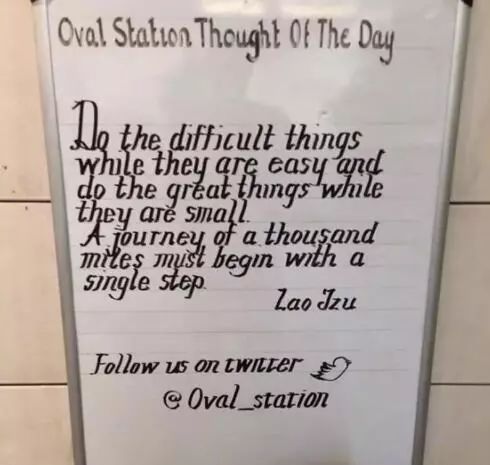 Oval Station Thought Of The Day
Do the difficult things
while they are easy and
do the great things while
they are small.
A journey of a thousand
miles must begin with a
single step.
Lao Tzu
Follow us on twitter
@Oval_station